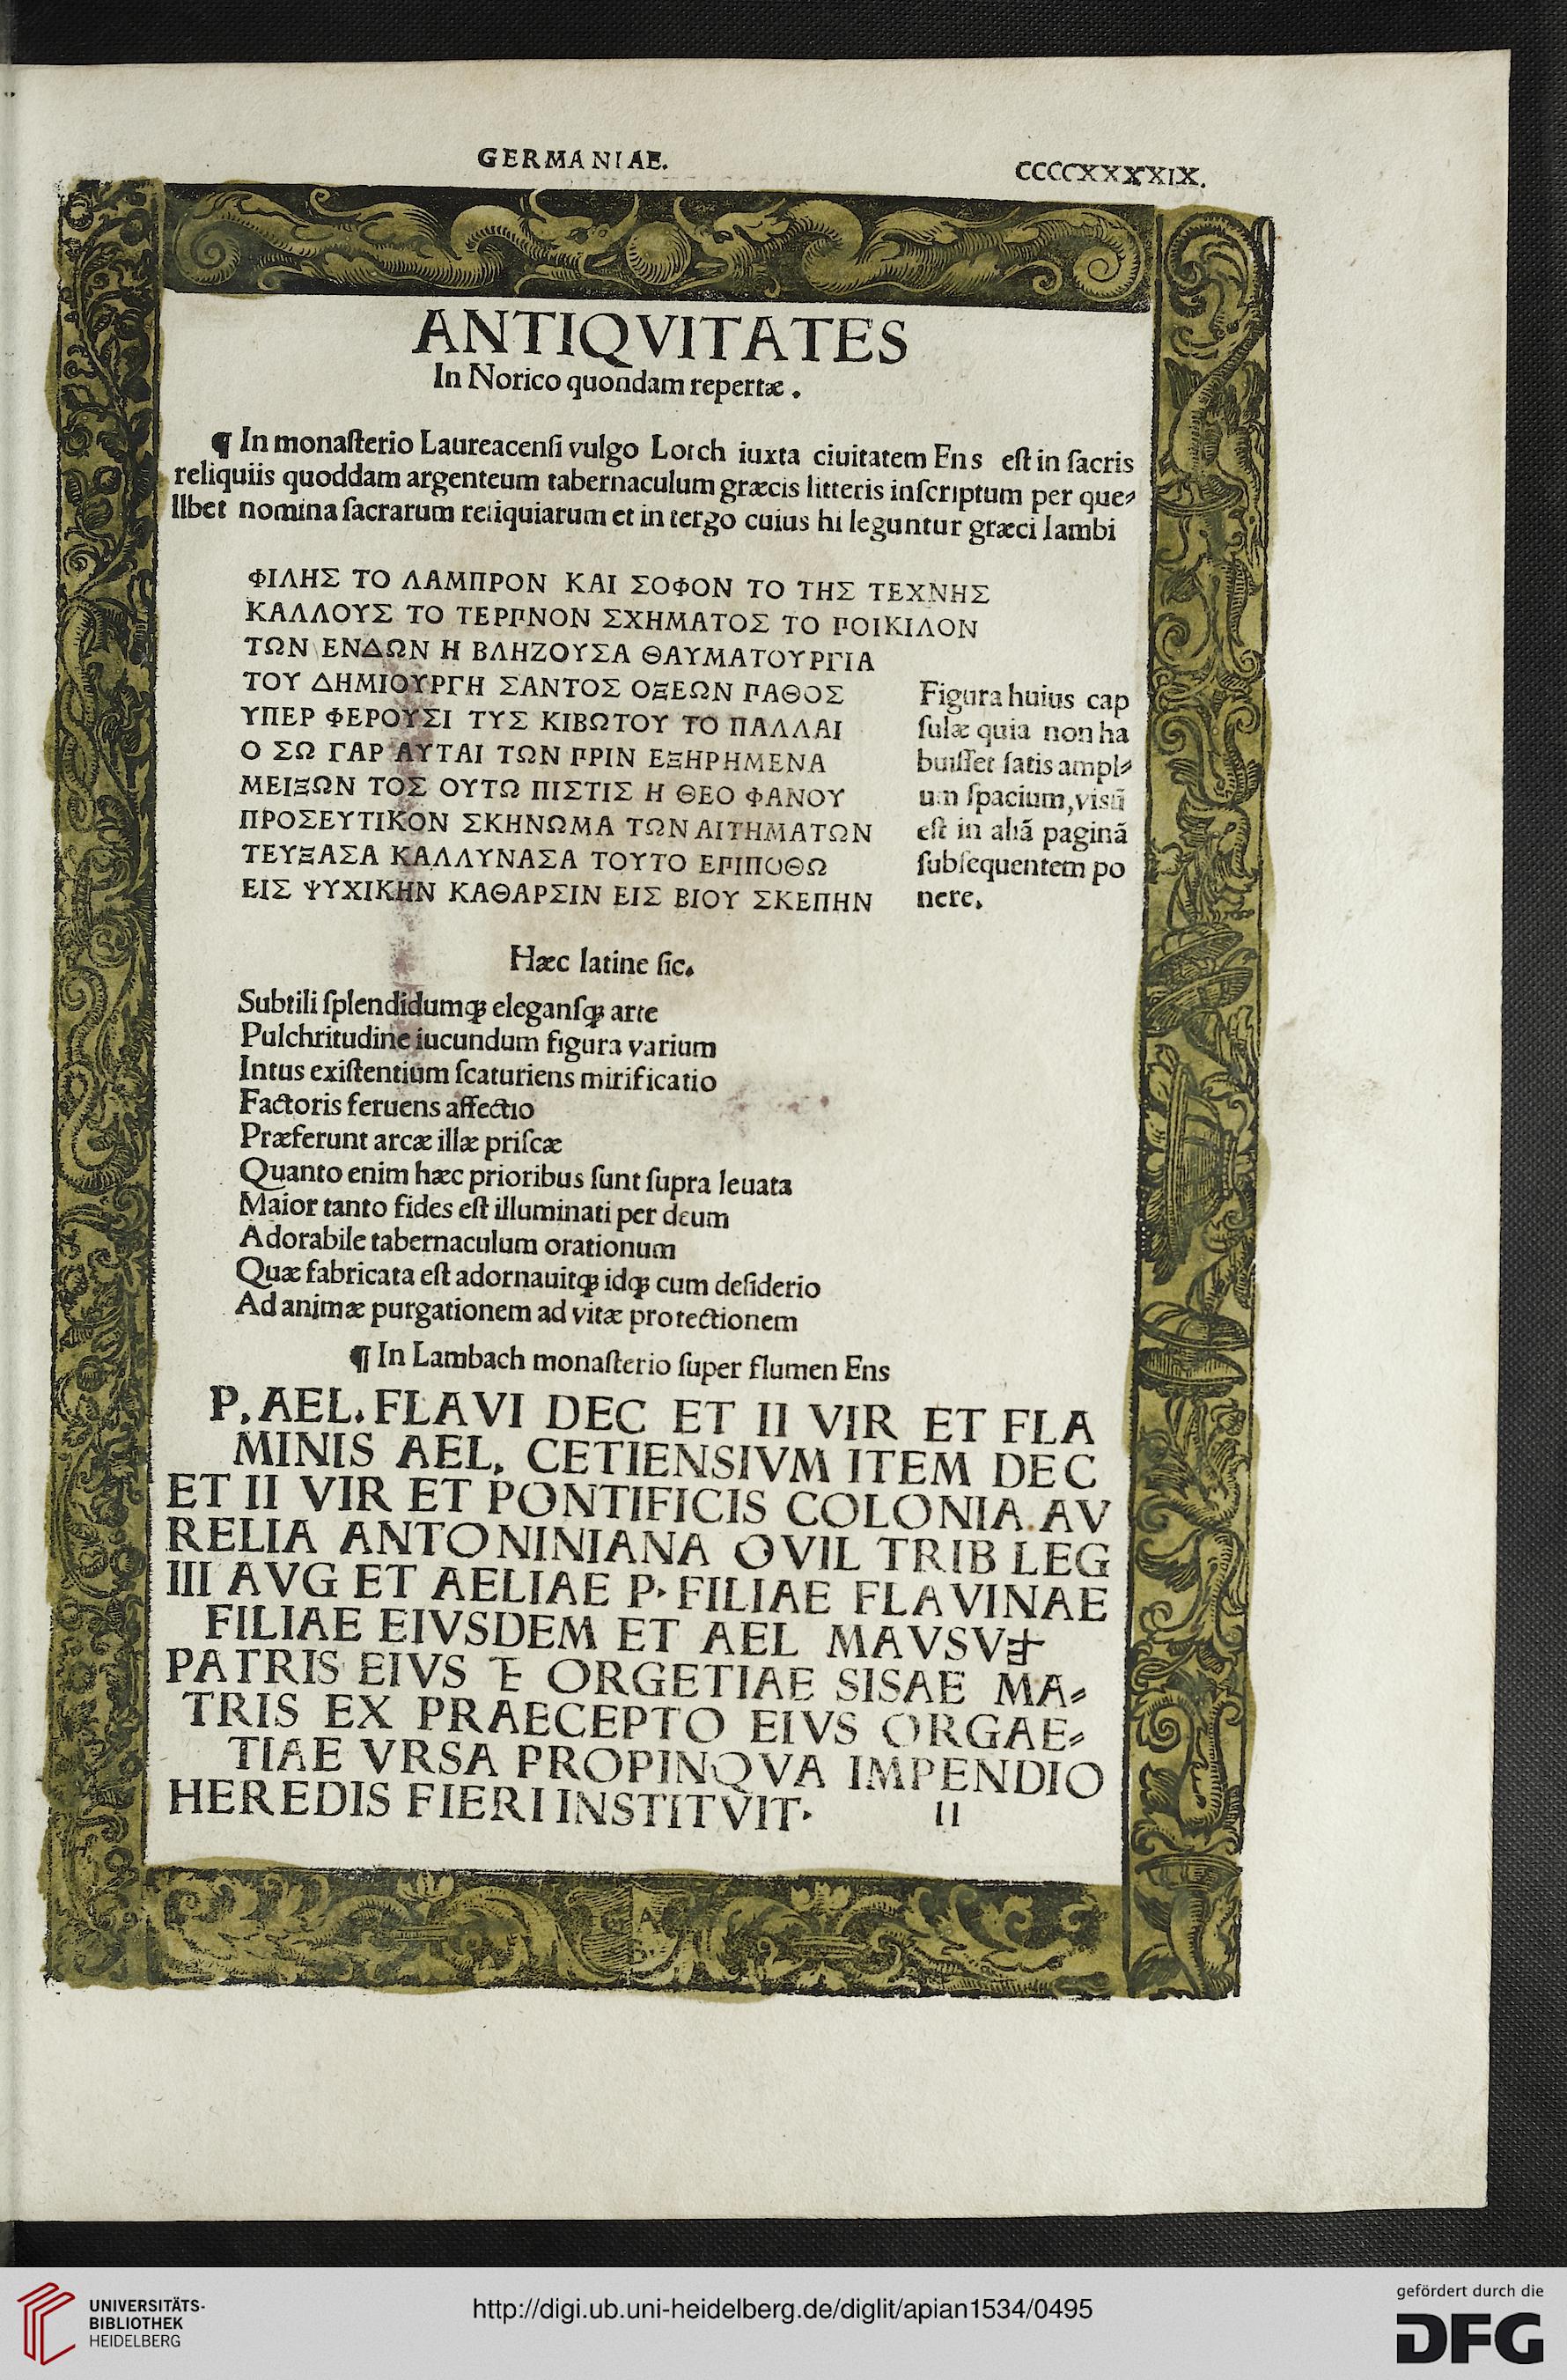 GERMANIAE.
CCCCXXXXIX.
ANTIQVITATES
In Norico quondam repertæ.
¶ In monaſterio Laureacenſi vulgo Lorch iuxta ciuitatem Ens eſt in ſacris
reliquiis quoddam argenteum tabernaculum græcis litteris inſcriptum per que⸗
llbet nomina ſacrarum reliquiarum et in tergo cuius hi leguntur græci Iambi
ΦΙΛΗΣ ΤΟ ΛΑΜΠΡΟΝ ΚΑΙ ΣΟΦΟΝ ΤΟ ΤΗΣ ΤΕΧΝΗΣ
ΚΑΛΛΟΥΣ ΤΟ ΤΕΡΠΝΟΝ ΣΧΗΜΑΤΟΣ ΤΟ ΠΟΙΚΙΛΟΝ
ΤΩΝ ΕΝΔΩΝ Η ΒΛΗΖΟΥΣΑ ΘΑΥΜΑΤΟΥΡΓΙΑ
ΤΟΥ ΔΗΜΙΟΥΡΓΗ ΣΑΝΤΟΣ ΟΞΕΩΝ ΠΑΘΟΣ
ΥΠΕΡ ΦΕΡΟΥΣΙ ΤΥΣ ΚΙΒΩΤΟΥ ΤΟ ΠΑΛΛΑΙ
Ο ΣΩ ΓΑΡ ΑΥΤΑΙ ΤΩΝ ΠΡΙΝ ΕΞΗΡΗΜΕΝΑ
ΜΕΙΞΩΝ ΤΟΣ ΟΥΤΩ ΠΙΣΤΙΣ Η ΘΕΟ ΦΑΝΟΥ
ΠΡΟΣΕΥΤΙΚΟΝ ΣΚΗΝΩΜΑ ΤΩΝ ΑΙΤΗΜΑΤΩΝ
ΤΕΥΞΑΣΑ ΚΑΛΛΥΝΑΣΑ ΤΟΥΤΟ ΕΠΙΠΟΘΩ
ΕΙΣ ΨΥΧΙΚΗΝ ΚΑΘΑΡΣΙΝ ΕΙΣ ΒΙΟΥ ΣΚΕΠΗΝ
Figura huius cap
ſulæ quia non ha
buiſſet ſatis ampl⸗
um ſpacium, viſū
eſt in aliã paginã
ſubſequentem po
nere.
Hæc latine ſic.
Subtili ſplendidumqꝫ eleganſqꝫ arte
Pulchritudine iucundum figura varium
Intus exiſtentium ſcaturiens mirificatio
Factoris feruens affectio
Præferunt arcæ illæ priſcæ
Quanto enim hæc prioribus ſunt ſupra leuata
Maior tanto fides eſt illuminati per deum
Adorabile tabernaculum orationum
Quæ fabricata eſt adornauitqꝫ idqꝫ cum deſiderio
Ad animæ purgationem ad vitæ protectionem
¶ In Lambach monaſterio ſuper flumen Ens
P. AEL. FLAVI DEC ET II VIR ET FLA
MINIS AEL. CETIENSIVM ITEM DEC
ET II VIR ET PONTIFICIS COLONIA AV
RELIA ANTONINIANA OVIL TRIB LEG
III AVG ET AELIAE P. FILIAE FLAVINAE
FILIAE EIVSDEM ET AEL MAVSV
PATRIS EIVS ORGETIAE SISAE MA⸗
TRIS EX PRAECEPTO EIVS ORGAE⸗
TIAE VRSA PROPINQVA IMPENDIO
HEREDIS FIERI INSTITVIT. II
UNIVERSITÄTS-
BIBLIOTHEK
HEIDELBERG
http://digi.ub.uni-heidelberg.de/diglit/apian1534/0495
gefördert durch die
DFG